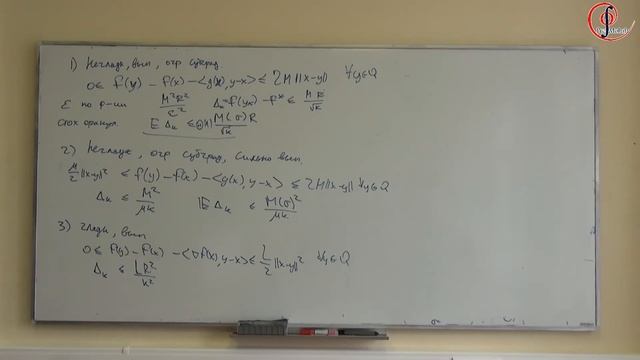 1) Негладк, вып, огр субград
0 ≤ f(y) − f(x) − <g(x), y−x> ≤ 2M ||x−y|| ∀y∈Q
ε по ф-ии M²R²/ε² Δₖ = f(yₖ) − f* ≤ MR/√k
стох оракул E Δₖ ≤ M(σ)R/√k
2) Негладк, огр субград, сильно вып
μ/2 ||x−y||² ≤ f(y) − f(x) − <g(x), y−x> ≤ 2M ||x−y|| ∀y∈Q
Δₖ ≤ M²/μk E Δₖ ≤ M(σ)²/μk
3) гладк, вып
0 ≤ f(y) − f(x) − <∇f(x), y−x> ≤ L/2 ||x−y||² ∀y∈Q
Δₖ ≤ LR²/k²